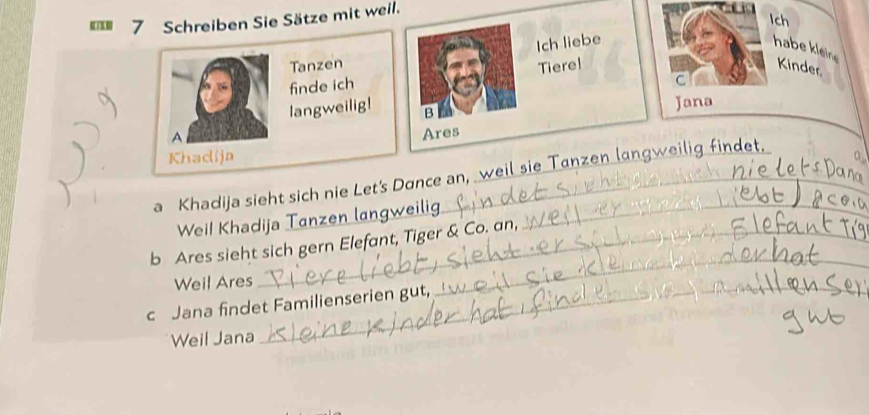 7 Schreiben Sie Sätze mit weil.
Tanzen
finde ich
langweilig!
A
Khadija
Ich liebe
Tiere!
B
Ares
Ich
habe kleine
Kinder.
C
Jana
a Khadija sieht sich nie Let's Dance an, weil sie Tanzen langweilig findet.
Weil Khadija Tanzen langweilig findet, sieht sie sich nie Let's Dana
b Ares sieht sich gern Elefant, Tiger & Co. an, weil er liebt
Weil Ares Tiere liebt, sieht er sich Elefant Tig
c Jana findet Familienserien gut, weil sie kleine hat
Weil Jana kleine Kinder hat, findet sie
gut